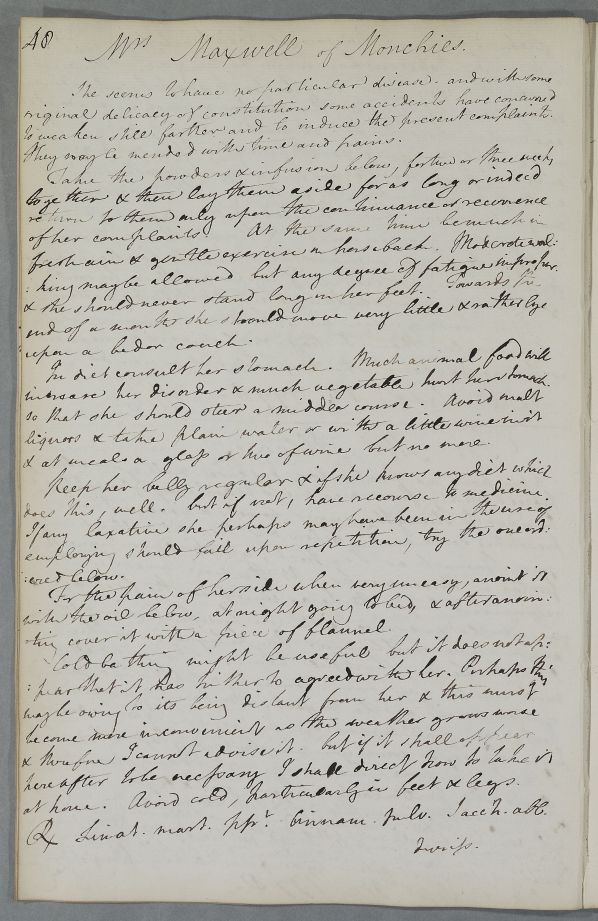 48
Mrs Maxwell of Monchies.
She seems to have no particular disease. and with some
original delicacy of constitution some accidents have concurred
to weaken still farther and to induce the present complaints.
They may be mended with time and pains.
Take the powders & infusion below, for two or three weeks
together & then lay them aside for as long or indeed
return to them only upon the continuance or recurrence
of her complaints. At the same time be much in
fresh air & gentle exercise on horseback. Moderate wal:
: king may be allowed but any degree of fatigue improper.
& she should never stand long on her feet. Towards the
end of a month she should move very little & rather lye
upon a bed or couch.
In diet consult her stomach. Much animal food will
increase her disorder & much vegetable hurt her stomach.
so that she should steer a middle course. Avoid malt
liquors & take plain water or with a little wine in it
& at meals a glass or two of wine but no more.
Keep her belly regular & if she knows any diet which
does this, well. but if not, have recourse to medicine.
If any laxative she perhaps may have been in the use of
employing should fail upon repetition, try the one ord:
:ered below.
For the pain of her side when very uneasy, anoint it
with the oil below, at night going to bed, & after anoin:
:ting cover it with a piece of flannel.
Cold bathing might be useful but it does not ap:
: pear that it has hitherto agreed with her. Perhaps this
may be owing to its being distant from her & this must
become more inconvenient as the weather grows worse
& therefore I cannot advise it. but if it shall appear
hereafter to be necessary I shall direct how to take it
at home. Avoid cold, particularly in feet & legs.
℞ Limat. mart. ppt. Cinnam. pulv. Sacch. alb.